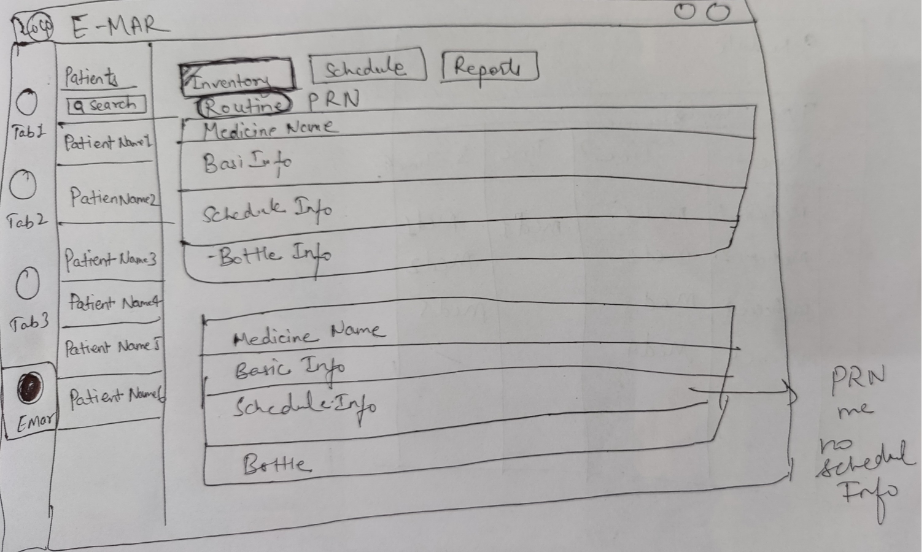 Logo E-MAR
Tab1
Tab2
Tab3
Emar
Patients
Search
Patient Name1
PatienName2
Patient Name3
Patient Name4
Patient Name5
Patient Name6
Inventory Schedule Reports
Routine PRN
Medicine Name
Basi Info
Schedule Info
-Bottle Info
Medicine Name
Basic Info
Schedule Info
Bottle
PRN
me
no
schedul
Info